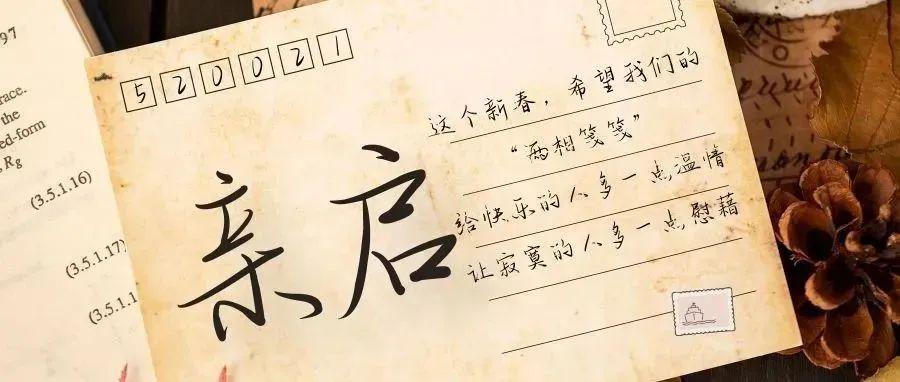 97
race.
the
ed-form
Rg
(3.5.1.16)
(3.5.1.17)
(3.5.1.1
520021
亲启
这个新春，希望我们的
“两相笺笺”
给快乐的人多一点温情
让寂寞的人多一点慰藉